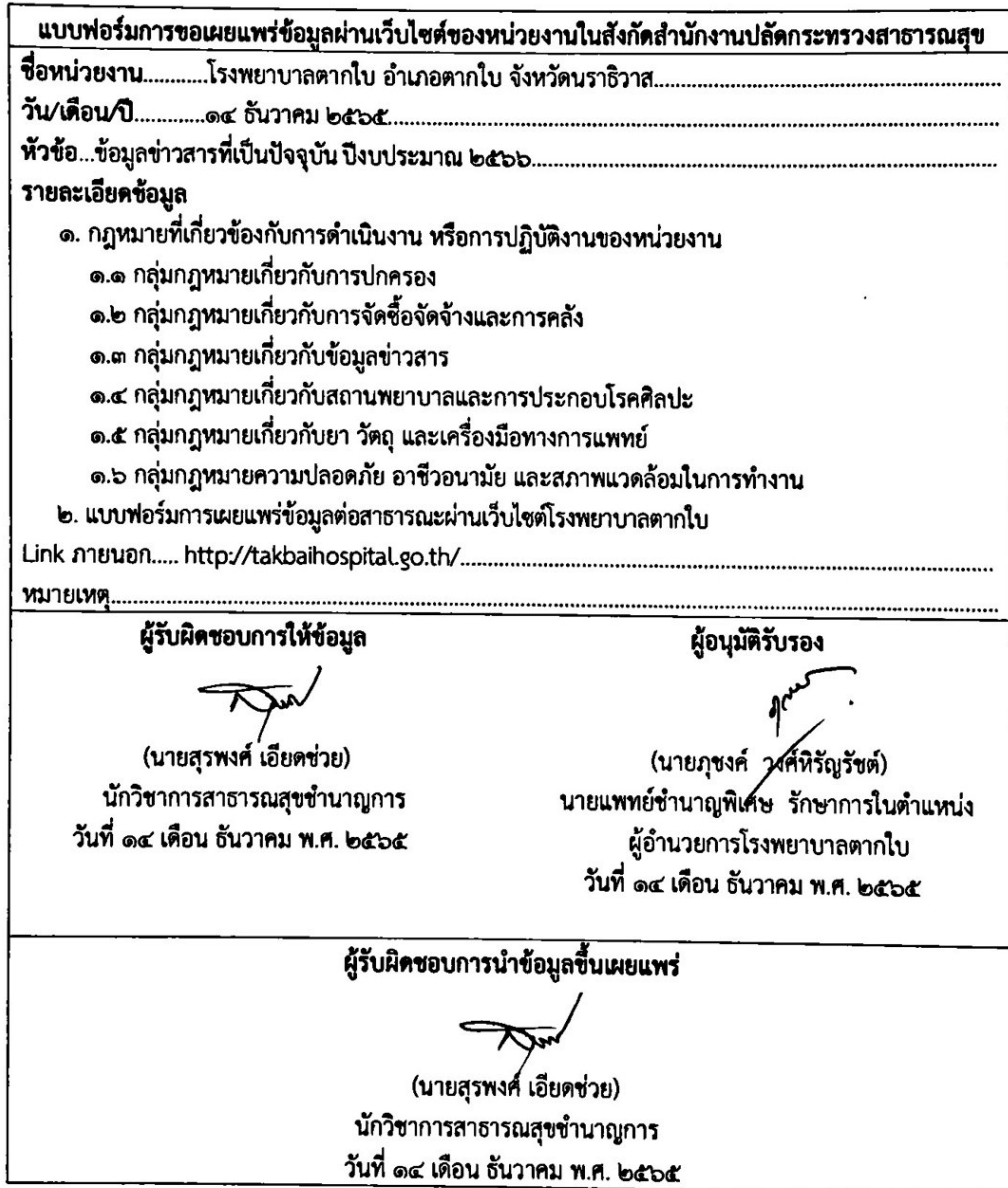 แบบฟอร์มการขอเผยแพร่ข้อมูลผ่านเว็บไซต์ของหน่วยงานในสังกัดสำนักงานปลัดกระทรวงสาธารณสุข
ชื่อหน่วยงาน............โรงพยาบาลตากใบ อำเภอตากใบ จังหวัดนราธิวาส............
วัน/เดือน/ปี.............๑๔ ธันวาคม ๒๕๖๕............
หัวข้อ...ข้อมูลข่าวสารที่เป็นปัจจุบัน ปีงบประมาณ ๒๕๖๖............
รายละเอียดข้อมูล
๑. กฎหมายที่เกี่ยวข้องกับการดำเนินงาน หรือการปฏิบัติงานของหน่วยงาน
๑.๑ กลุ่มกฎหมายเกี่ยวกับการปกครอง
๑.๒ กลุ่มกฎหมายเกี่ยวกับการจัดซื้อจัดจ้างและการคลัง
๑.๓ กลุ่มกฎหมายเกี่ยวกับข้อมูลข่าวสาร
๑.๔ กลุ่มกฎหมายเกี่ยวกับสถานพยาบาลและการประกอบโรคศิลปะ
๑.๕ กลุ่มกฎหมายเกี่ยวกับยา วัตถุ และเครื่องมือทางการแพทย์
๑.๖ กลุ่มกฎหมายความปลอดภัย อาชีวอนามัย และสภาพแวดล้อมในการทำงาน
๒. แบบฟอร์มการเผยแพร่ข้อมูลต่อสาธารณะผ่านเว็บไซต์โรงพยาบาลตากใบ
Link ภายนอก..... http://takbaihospital.go.th/............
หมายเหตุ............
ผู้รับผิดชอบการให้ข้อมูล
(นายสุรพงศ์ เอียดช่วย)
นักวิชาการสาธารณสุขชำนาญการ
วันที่ ๑๔ เดือน ธันวาคม พ.ศ. ๒๕๖๕
ผู้อนุมัติรับรอง
(นายภุชงค์ วงศ์หิรัญรัชต์)
นายแพทย์ชำนาญพิเศษ รักษาการในตำแหน่ง
ผู้อำนวยการโรงพยาบาลตากใบ
วันที่ ๑๔ เดือน ธันวาคม พ.ศ. ๒๕๖๕
ผู้รับผิดชอบการนำข้อมูลขึ้นเผยแพร่
(นายสุรพงศ์ เอียดช่วย)
นักวิชาการสาธารณสุขชำนาญการ
วันที่ ๑๔ เดือน ธันวาคม พ.ศ. ๒๕๖๕